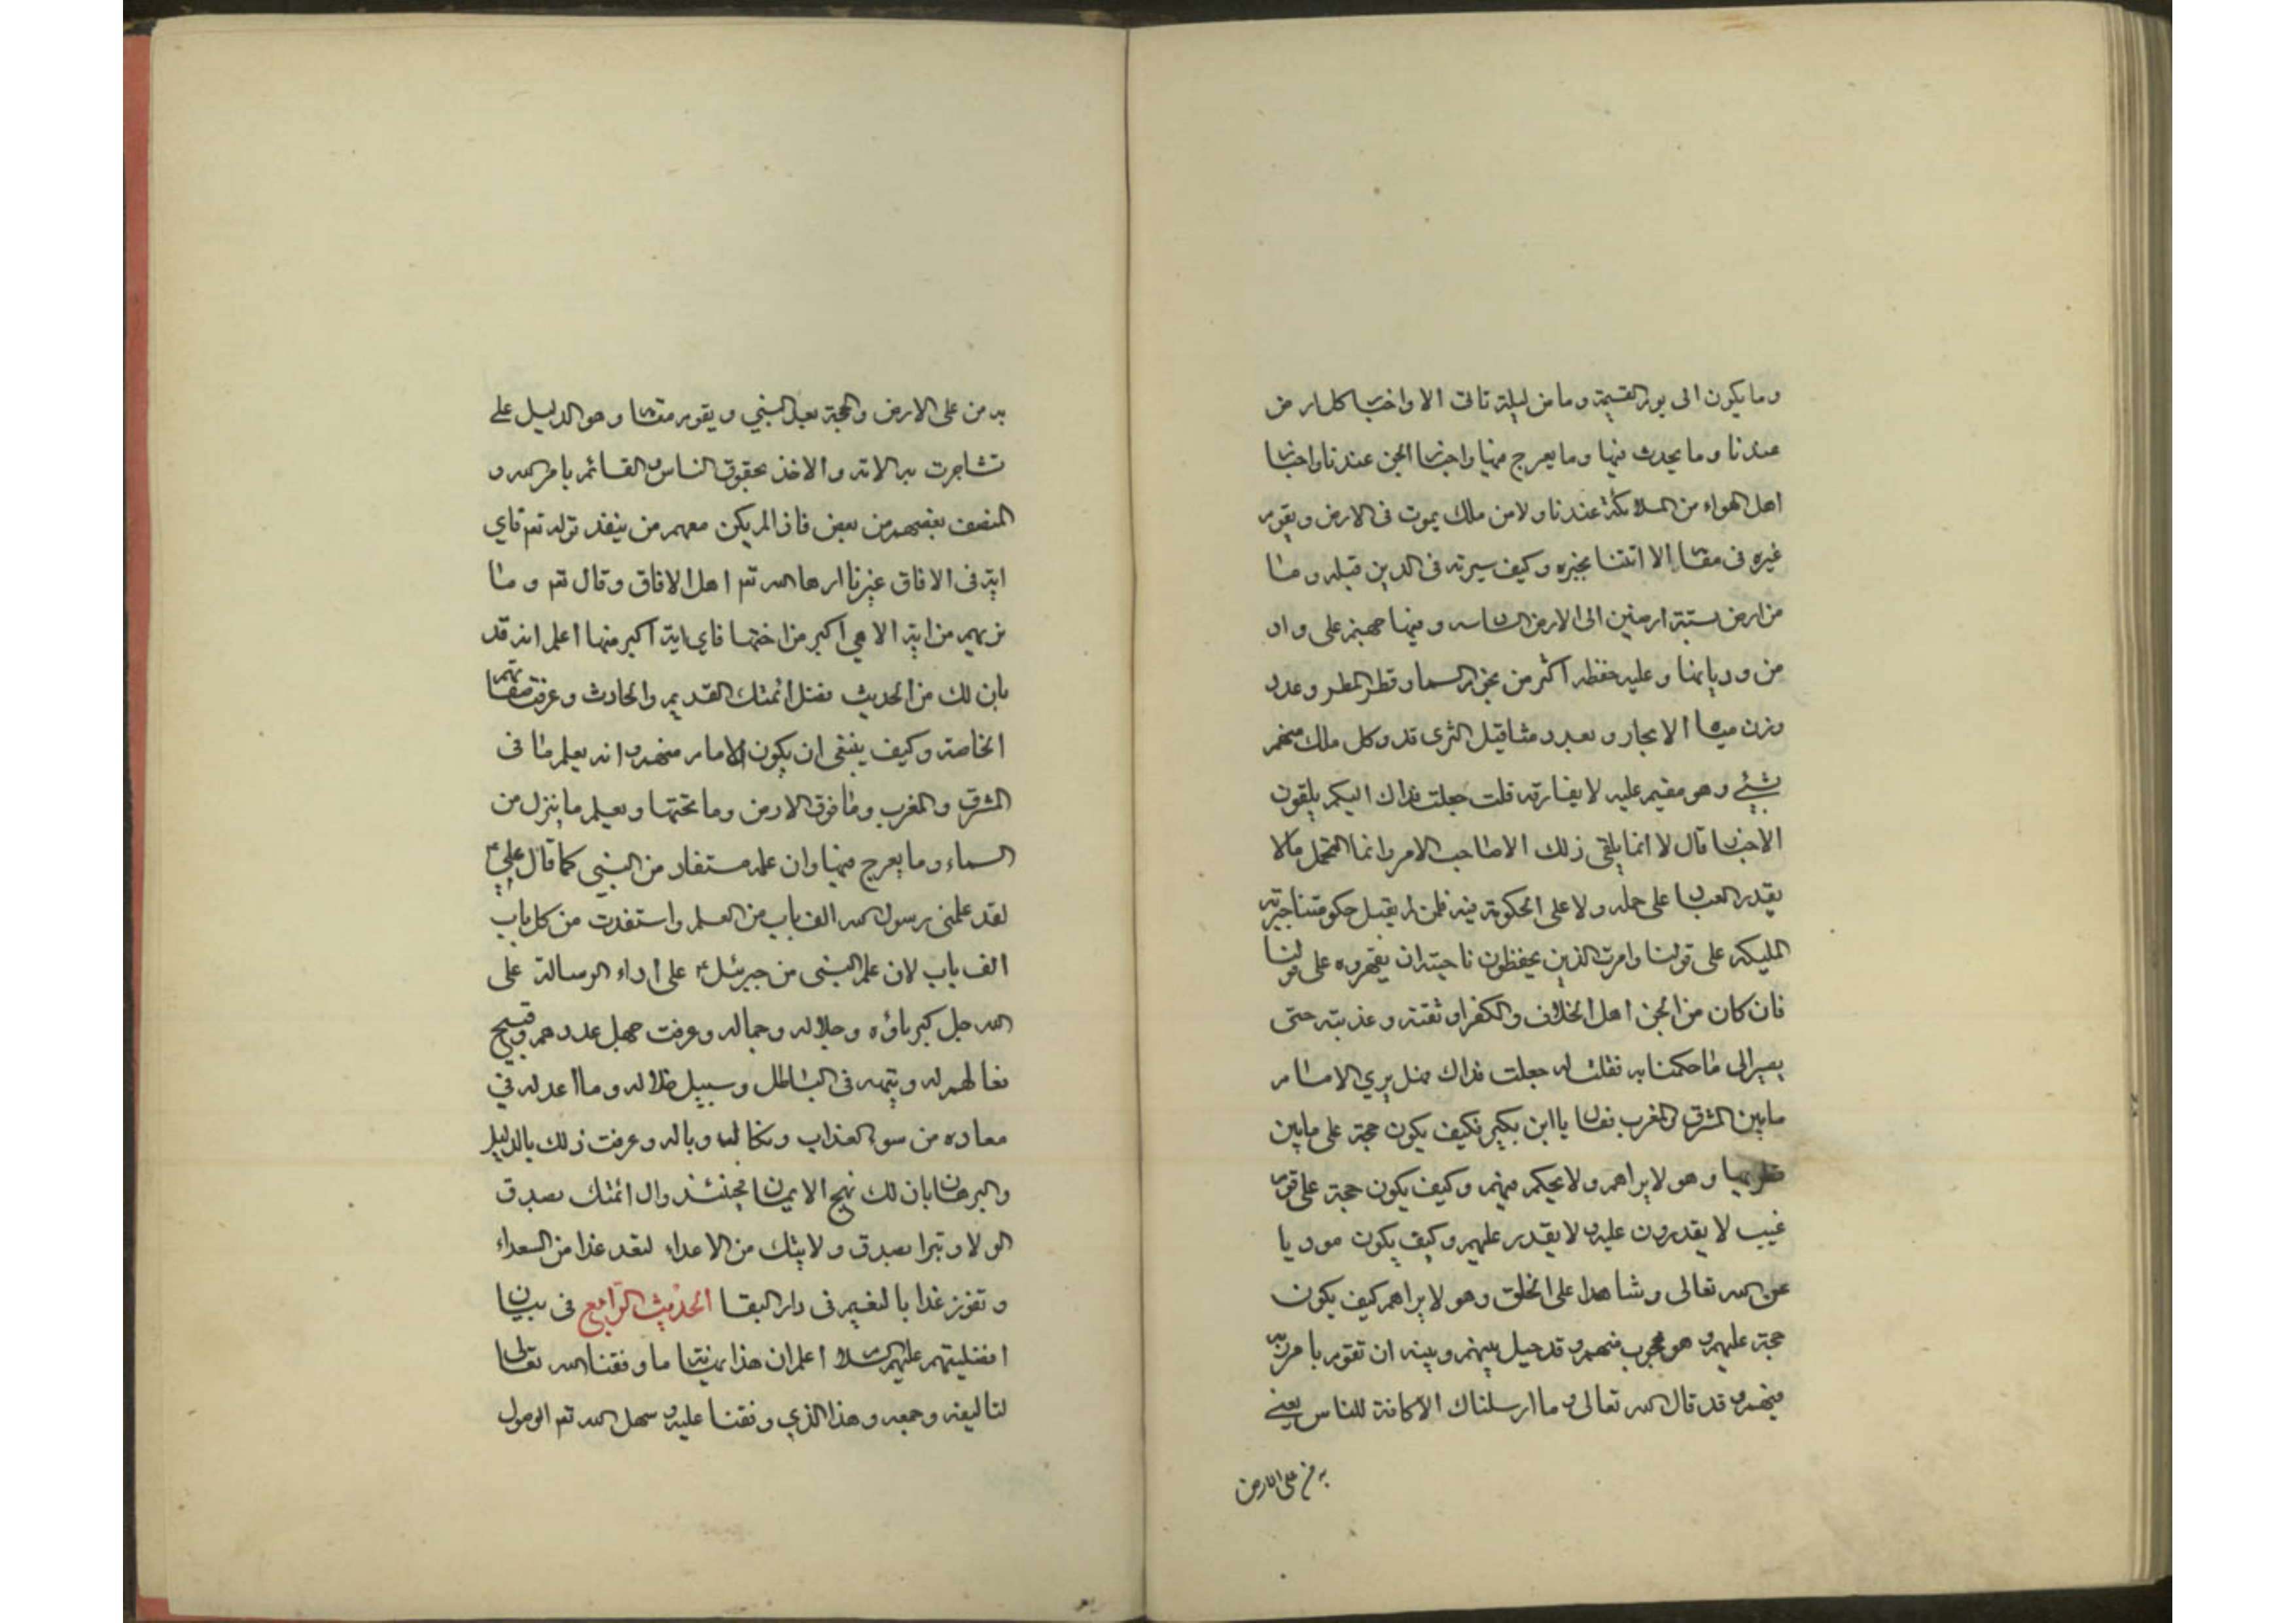 وما يكون الى يوم القيمة وما من ليلة تاتى الا واخبار كل ارض
عندنا وما يحدث فيها وما يعرج منها واخبار الجن عندنا واخبار
اهل الهواء من الملائكة عندنا ولا من ملك يموت فى الارض ويقوم
غيره فى مقامه الا اتتنا بخبره وكيف سيرته فى الدين قبله وما
من ارض ستة ارضين الى الارض السابعة ومنها جهنم على واد
من وديانها وعليه حفظه اكثر من نجوم السما وقطر المطر وعدد
وزن مياه الابحار وبعدد مثاقيل الثرى قد وكل ملك منهم
بشيئ وهو مقيم عليه لا يفارقه قلت جعلت فداك اليكم يلقون
الاخبار قال لا انما يلقى ذلك الا صاحب الامر وانما لنحمل ما لا
يقدر العباد على حمله ولا على الحكومة فيه فمن لم يقبل حكومتنا جبرته
المليكة على قولنا وامرت الذين يحفظون ناحيته ان يقهروه على قولنا
فان كان من الجن اهل الخلاف والكفر اوثقته وعذبته حتى
يصير الى ما حكمنا به فقلت له جعلت فداك فهل يرى الامام
ما بين المشرق والمغرب فقال يا ابن بكير فكيف يكون حجة على مابين
قطريها وهو لا يراهم ولا يحكم فيهم وكيف يكون حجة على قوم
غيب لا يقدرون عليه ولا يقدر عليهم وكيف يكون موديا
عن الله تعالى وشاهدا على الخلق وهو لا يراهم كيف يكون
حجة عليهم وهو محجوب منهم وقد حيل بينهم وبينه ان تقوم بامر ربه
فيهم وقد قال الله تعالى وما ارسلناك الا كافة للناس يعنى
به من على الارض
به من على الارض والحجة بعد النبي ويقوم مقامه وهو الدليل على
تشاجرت به الامة والاخذ بحقوق الناس والقائم بامر الله و
المنصف بعضهم من بعض فاذا لم يكن معهم من ينفذ قوله تعم فاي
اية فى الافاق غيرنا اراها الله تعم اهل الافاق وقال تعم وما
نريهم من اية الا هي اكبر من اختها فاي اية اكبر منها اعلم انه قد
بان لك من الحديث فضل ائمتك القديم والحادث وعرفت صفاتهم
الخاصة وكيف ينبغى ان يكون الامام منهم وانه يعلم ما فى
المشرق والمغرب وما فوق الارض وما تحتها ويعلم ما ينزل من
السماء وما يعرج منها وان علمه مستفاد من النبي كما قال علي ع
لقد علمنى رسول الله الف باب من العلم واستفدت من كل باب
الف باب لان علم النبى من جبرئيل ع على اداء الرسالة على
الله جل كبرياؤه وجلاله وجماله وعرفت جهل عددهم وقبيح
فعالهم له وتيهه فى الباطل وسبيل ضلاله وما اعد له في
معاده من سوء العذاب ونكاله وباله وعرفت ذلك بالدليل
والبرهان بان لك نهج الايمان فحينئذ وال ائمتك بصدق
الولا وتبرا بصدق ولايتك من الاعداء لتعد غدا من السعداء
وتفوز غدا بالنعيم فى دار البقا الحديث الرابع فى بيان
افضليتهم عليهم السلام اعلم ان هذا نهاية ما وفقنا الله تعالى
لتاليفه وجمعه وهذا الذي وفقنا عليه وسهل الله تعم الوصول